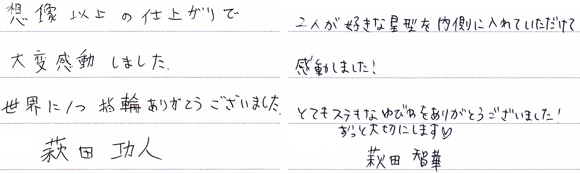 想像以上の仕上がりで
大変感動しました.
世界に1つ指輪ありがとうございました
萩田 功人
2人が好きな星型を内側に入れていただけて
感動しました!
とてもステキなゆびわをありがとうございました!
ずっと大切にします♡
萩田 智華